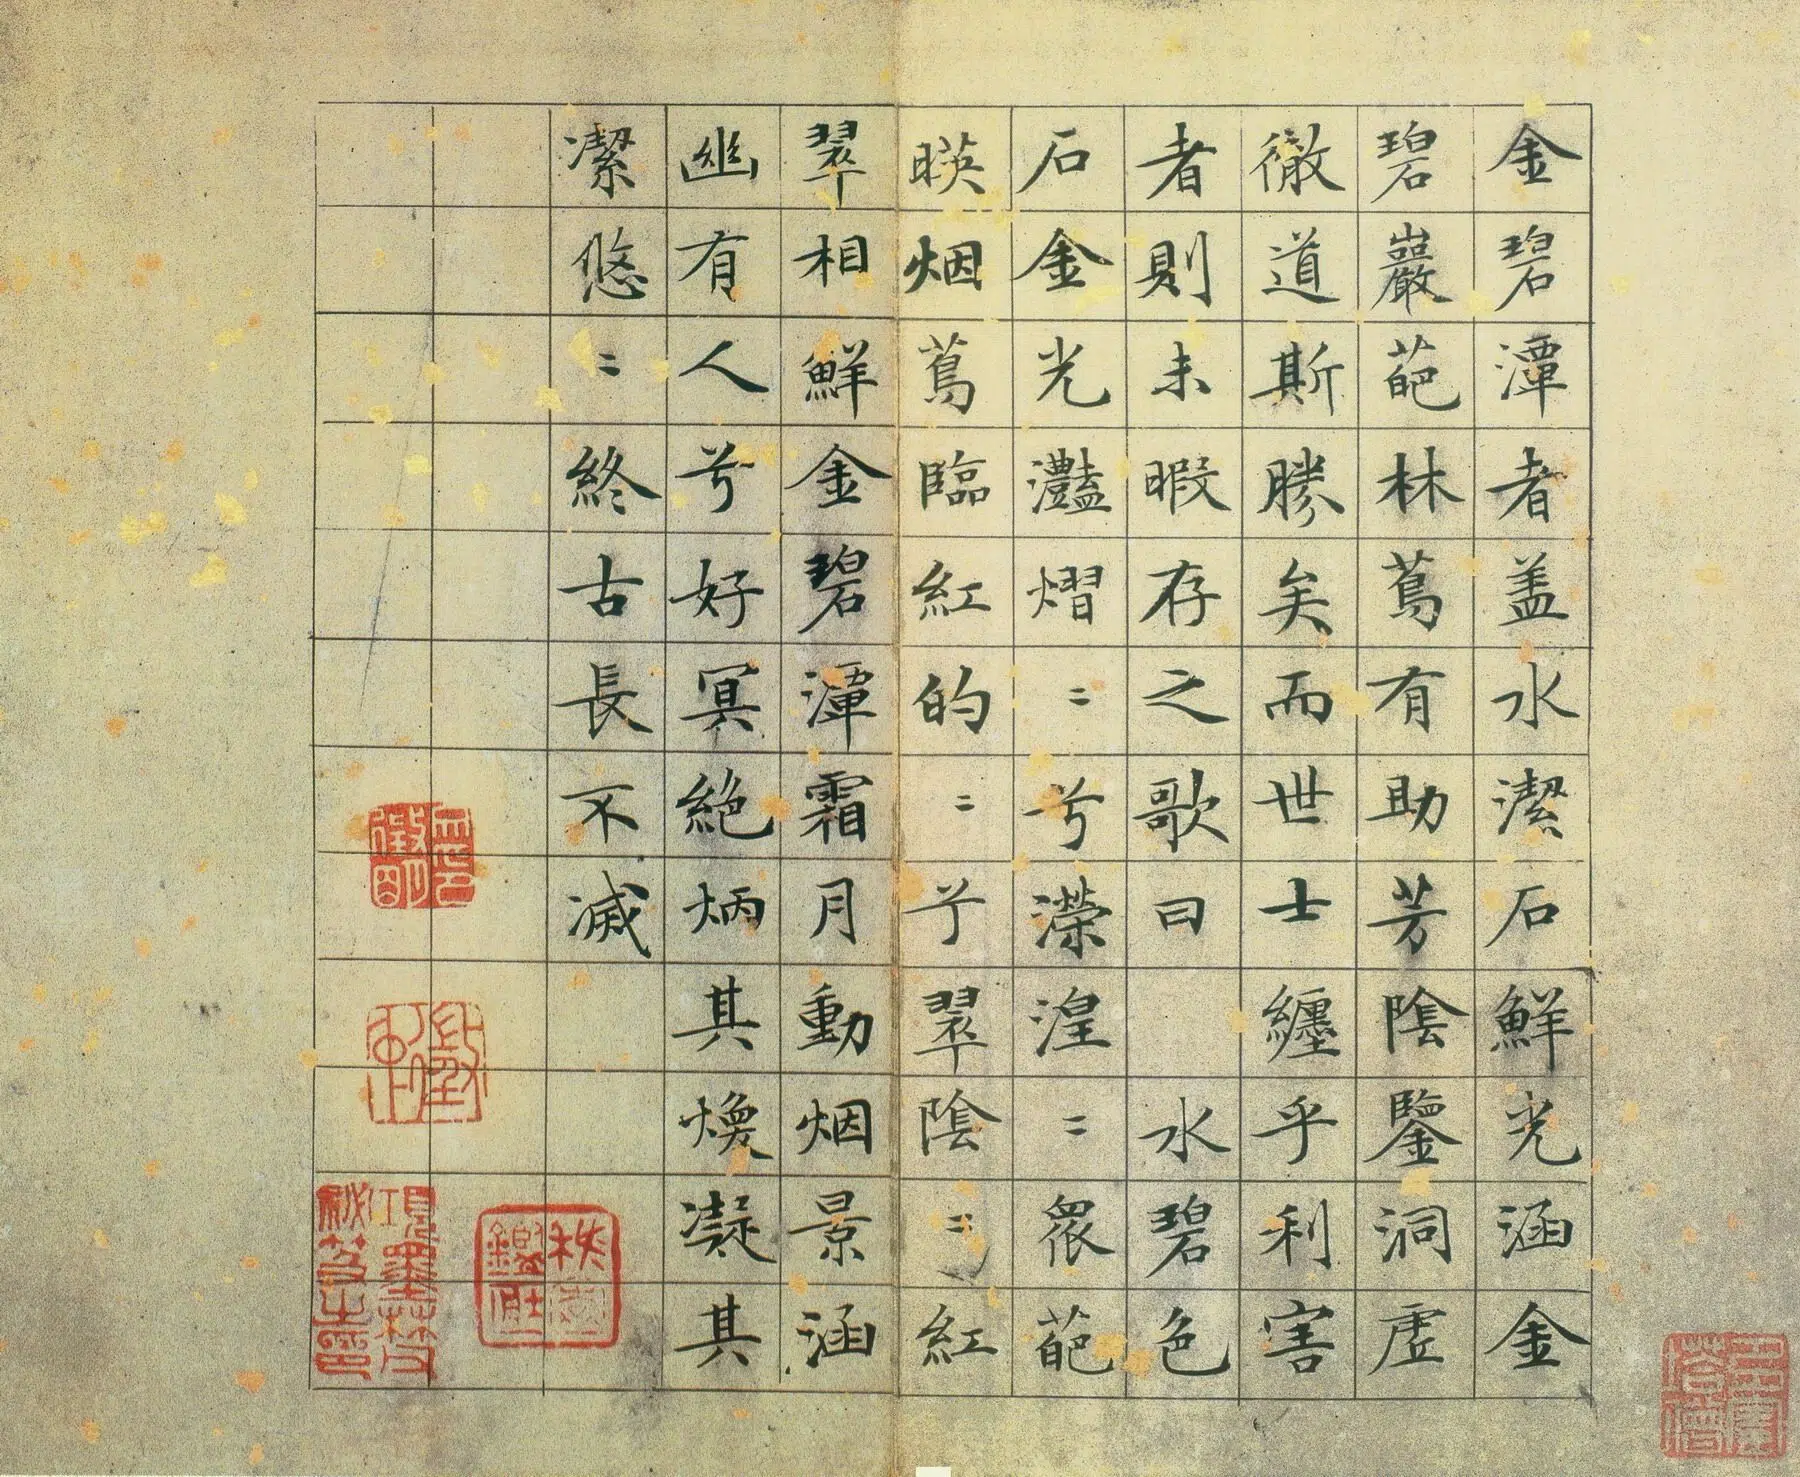 金碧潭者盖水潔石鮮光涵金
碧巖葩林蔦有助芳陰鑒洞虛
徹道斯勝矣而世士纏乎利害
者則未暇存之歌曰 水碧色
石金光灩熠〻兮濴湟〻衆葩
暎烟蔦臨紅的〻兮翠陰〻紅
翠相鮮金碧潭霜月動烟景涵
幽有人兮好冥絶炳其煥凝其
潔悠〻終古長不滅
項墨林父
祕笈之印